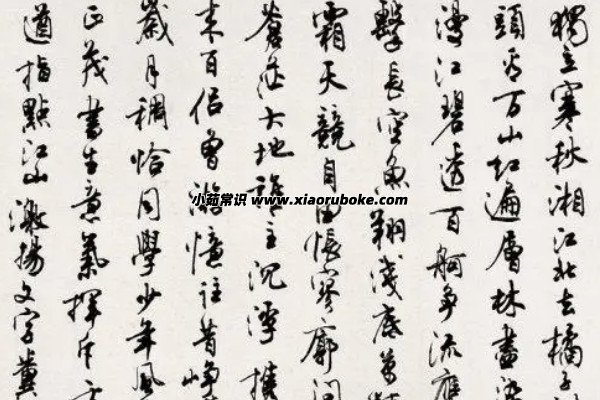 獨立寒秋湘江北去橘子
頭看万山红遍層林盡染
漫江碧透百舸争流鹰
擊長空魚翔淺底萬類
霜天競自由悵寥廓問
蒼茫大地誰主沉浮攜
来百侣曾游憶往昔崢
歲月稠恰同學少年風
正茂書生意氣揮斥
遒指點江山激揚文字糞
小茹常识 www.xiaoruboke.com